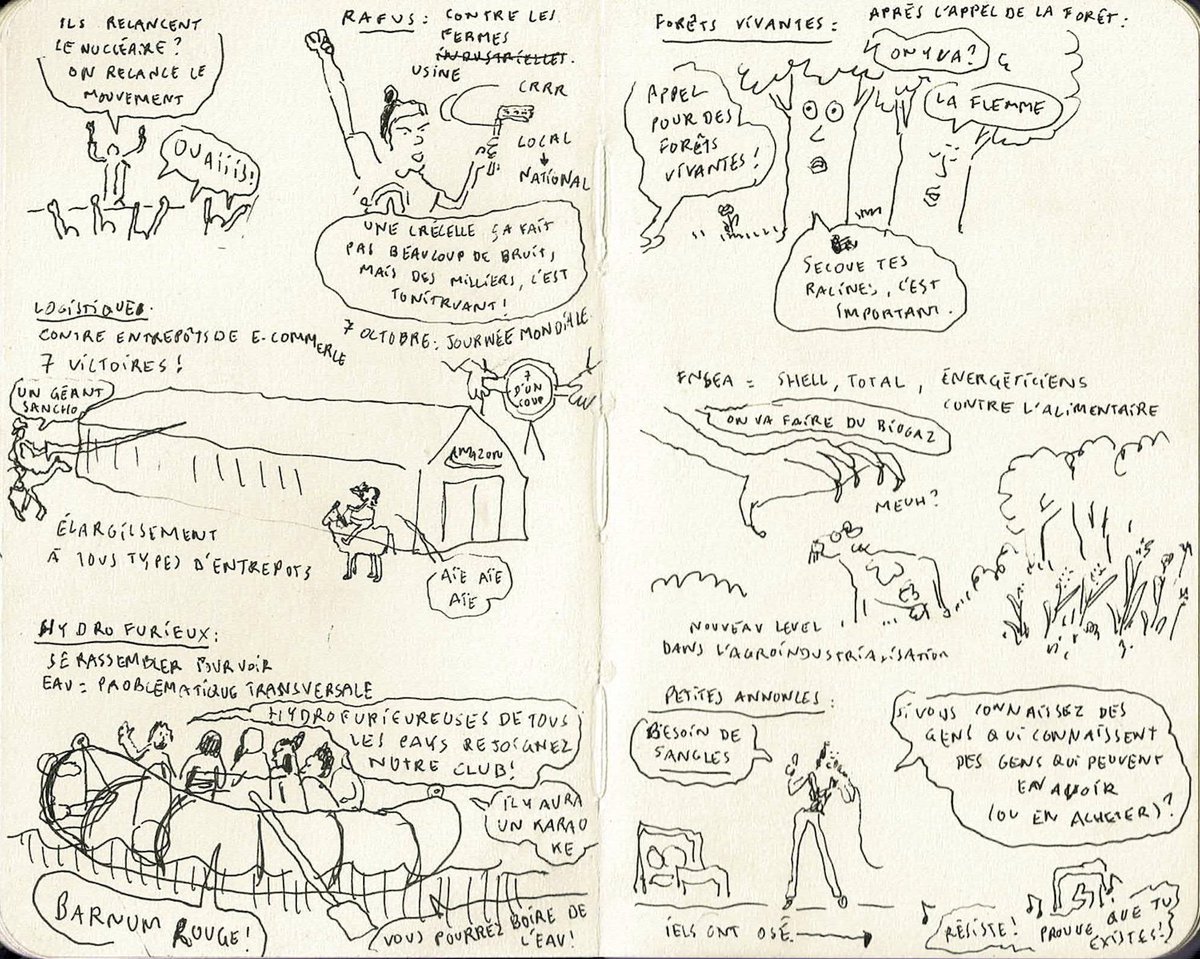 ILS RELANCENT
LE NUCLÉAIRE?
ON RELANCE LE
MOUVEMENT
OUAÏÏÏS!
RAFUS: CONTRE LES
FERMES
INDUSTRIELLES.
USINE
CRRR
LOCAL
NATIONAL
UNE CRÉCELLE ÇA FAIT
PAS BEAUCOUP DE BRUIT,
MAIS DES MILLIERS, C'EST
TONITRUANT!
7 OCTOBRE: JOURNÉE MONDIALE
LOGISTIQUE.
CONTRE ENTREPÔTS DE E-COMMERCE
7 VICTOIRES!
UN GÉANT
SANCHO
7
D'UN
COUP
AMAZON
ÉLARGISSEMENT
À TOUS TYPES D'ENTREPOTS
AÏE AÏE
AÏE
HYDRO FURIEUX:
SE RASSEMBLER POUR VOIR
EAU = PROBLÉMATIQUE TRANSVERSALE
HYDROFURIEUREUSES DE TOUS
LES PAYS REJOIGNEZ
NOTRE CLUB!
IL Y AURA
UN KARAO
KE
BARNUM ROUGE!
VOUS POURREZ BOIRE DE
L'EAU!
FORÊTS VIVANTES:
APRÈS L'APPEL DE LA FORÊT:
ON Y VA?
LA FLEMME
APPEL
POUR DES
FORÊTS
VIVANTES!
SECOUE TES
RACINES, C'EST
IMPORTANT.
FNSEA = SHELL, TOTAL, ÉNERGÉTICIENS
CONTRE L'ALIMENTAIRE
ON VA FAIRE DU BIOGAZ
MEUH?
NOUVEAU LEVEL
DANS L'AGROINDUSTRIALISATION
PETITES ANNONCES:
BESOIN DE
SANGLES
SI VOUS CONNAISSEZ DES
GENS QUI CONNAISSENT
DES GENS QUI PEUVENT
EN AVOIR
(OU EN ACHETER)?
IELS ONT OSÉ
RÉSISTE!
PROUVE QUE TU
EXISTES!